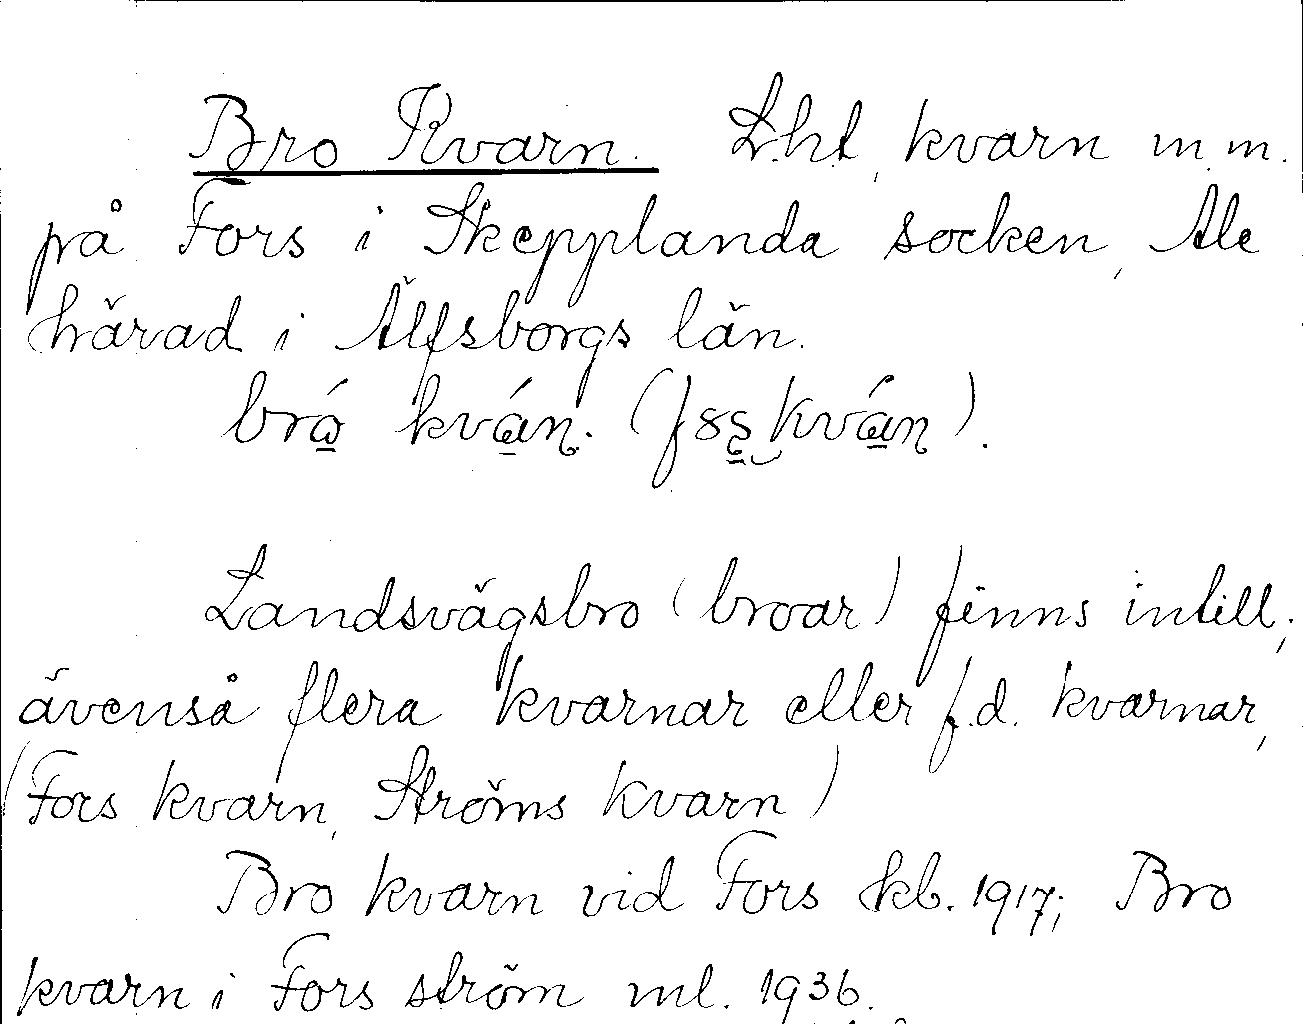 Bro Kvarn. Lht, kvarn m.m.
på Fors i Skepplanda socken, Ale
härad i Älfsborgs län.
Landsvägsbro (broar) finns intill;
ävenså flera kvarnar eller f.d. kvarnar,
(Fors kvarn, Ströms kvarn)
Bro kvarn vid Fors kb. 1917; Bro
kvarn i Fors ström ml. 1936.